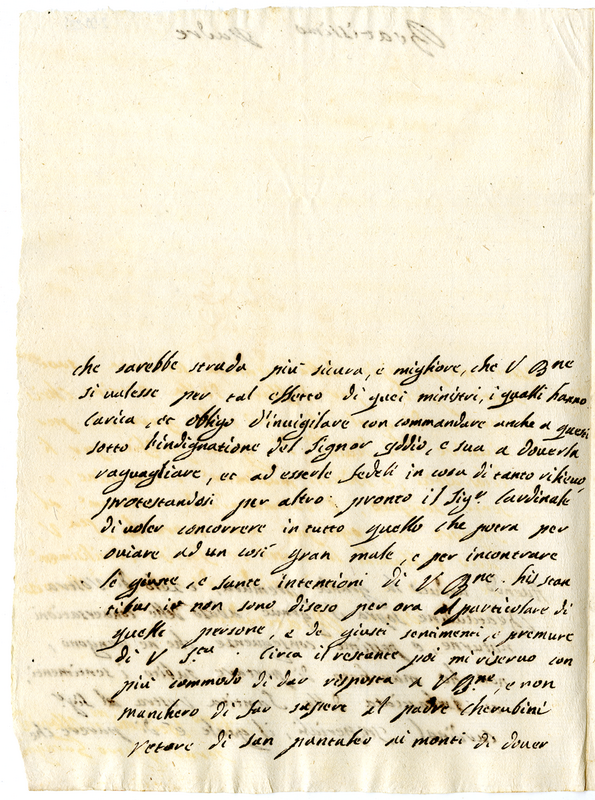 che sarebbe strada più sicura, e migliore, che V Bne
si valesse per tal effetto di quei ministri, i qualli hanno
carica, et obligo d'invigilare con commandare anche a questi
sotto l'indignatione del Signor Iddio, e sua a doverla
raguagliare, et ad esserle fedeli in cosa di tanto rilievo,
protestandosi per altro pronto il Sigr. Cardinale
di voler concorrere in tutto quello che potra per
oviare ad un così gran male, e per incontrare
le giuste, e sante intentioni di V Bne, his stan
tibus io non sono disceso per ora al particolare di
quelle persone, e de giusti sentimenti, e premure
di V S.ta. Circa il restante poi mi riservo con
più commodo di dar risposta a V Bne, e non
manchero di far sapere al padre Cherubini
retore di san pantaleo ai monti di dover